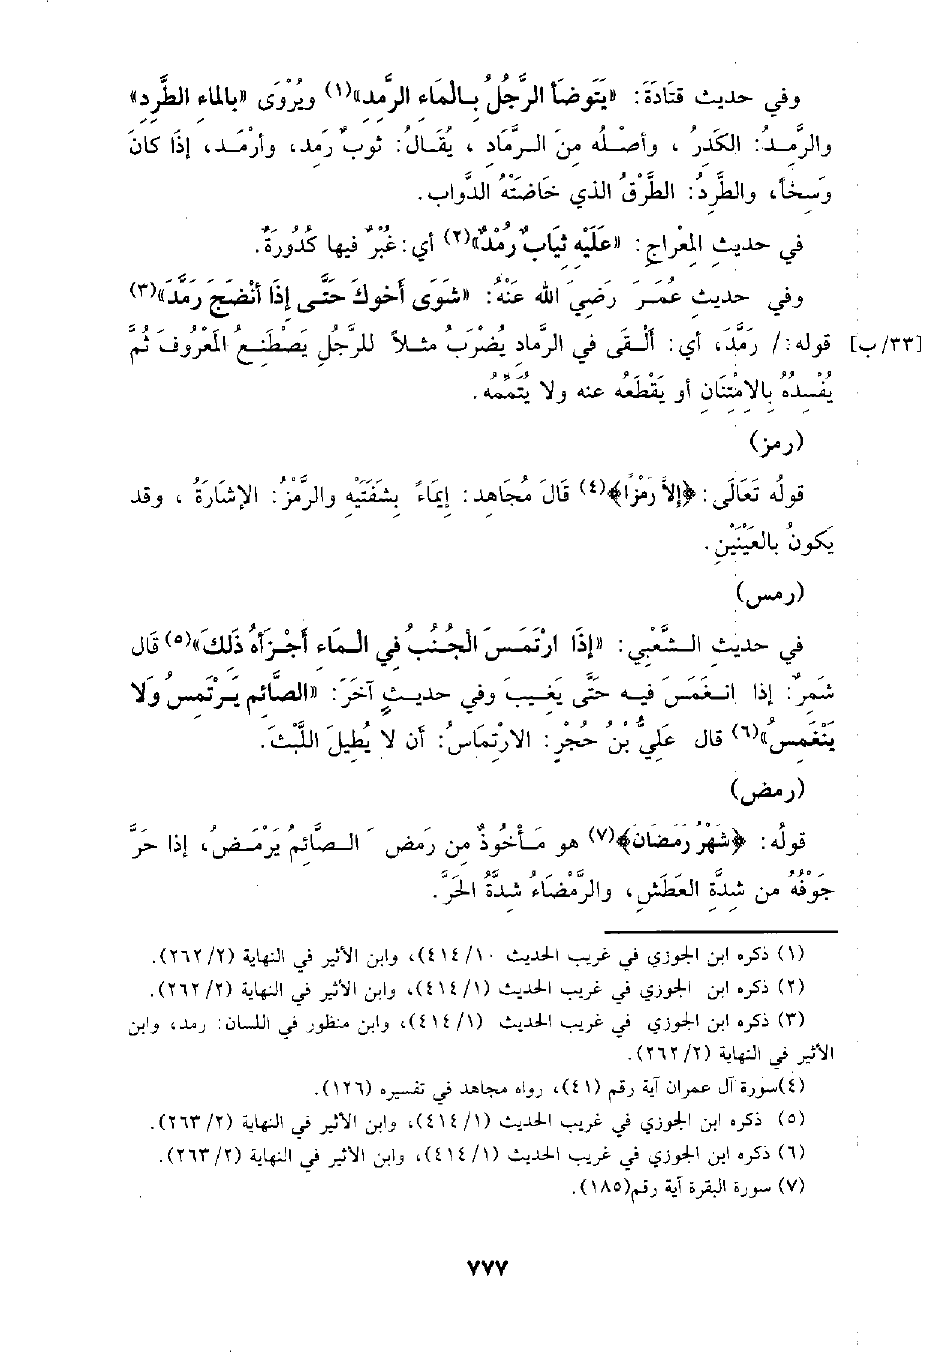 وفي حديث قتَادَةَ: «يَتَوضأ الرَّجُلُ بـالمَاء الرَّمد»(١) ويُرْوَى «بالماء الطَّرِد»
والرَّمِـدُ: الكَدَرُ ، وأصْلُه مِنَ الـرَّمادِ ، يُقَـالُ: ثوبٌ رَمِد، وأرْمَـد، إذَا كانَ
وَسِخاً، والطَّرِدُ: الطَّرْقُ الذي خَاضَتْهُ الدَّواب.
في حديثِ المِعْراج: «عَلَيْهِ ثِيَابٌ رُمْدٌ»(٢) أي: غُبْرٌ فيها كُدُورَةٌ.
وفي حديثِ عُمَـرَ رَضِيَ الله عَنْهُ: «شَوَى أخوكَ حَتَّـى إذَا أنْضَجَ رَمَّدَ»(٣)
[٣٣/ب] قوله:/ رَمَّدَ، أي: ألْـقَى في الرمَّادِ يُضْرَبُ مثـلاً للرَّجُلِ يَصْطَنِـعُ المَعْرُوفَ ثُمَّ
يُفْسِـدُهُ بالامْتِنَانِ أو يَقْطَعُه عنه ولا يُتَمِّمُه.
(رمز)
قولُه تَعَالَى: ﴿إلاَّ رَمْزًا﴾(٤) قَالَ مُجَاهد: إيمَاءً بِشَفَتَيْهِ والرَّمْزُ: الإشَارَةُ ، وقد
يَكونُ بالعَيْنَيْنِ.
(رمس)
في حديثِ الـشَّعْبي: «إذَا ارْتَمَـسَ الْجُنُـبُ في الـماء أجْـزَأهُ ذَلكَ»(٥) قَال
شَمِرٌ: إذا انـغَمَسَ فيـه حَتَّى يَغِيـبَ وفي حديـثٍ آخَرَ: «الصَّائِم يَـرْتَمِسُ وَلا
يَنْغَمِسُ»(٦) قال عَلِيُّ بْنُ حُجْرٍ: الارْتِماسُ: أن لا يُطيلَ اللَّبْثَ.
(رمض)
قولُه: ﴿شَهْرُ رَمَضَانَ﴾(٧) هو مَـأْخُوذٌ مِن رَمض الـصَّائِم يَرْمَـضُ، إذا حَرَّ
جَوْفُهُ من شِدَّةِ العَطَشِ، والرَّمْضَاءُ شدَّةُ الحَرِّ.
(١) ذكره ابن الجوزي في غريب الحديث ٤١٤/١٠)، وابن الأثير في النهاية (٢٦٢/٢).
(٢) ذكره ابن الجوزي في غريب الحديث (٤١٤/١)، وابن الأثير في النهاية (٢٦٢/٢).
(٣) ذكره ابن الجوزي في غريب الحديث (٤١٤/١)، وابن منظور في اللسان: رمد، وابن
الأثير في النهاية (٢٦٢/٢).
(٤)سورة آل عمران آية رقم (٤١)، رواه مجاهد في تفسيره (١٢٦).
(٥) ذكره ابن الجوزي في غريب الحديث (٤١٤/١)، وابن الأثير في النهاية (٢٦٣/٢).
(٦) ذكره ابن الجوزي في غريب الحديث (٤١٤/١)، وابن الأثير في النهاية (٢٦٣/٢).
(٧) سورة البقرة آية رقم(١٨٥).
٧٧٧